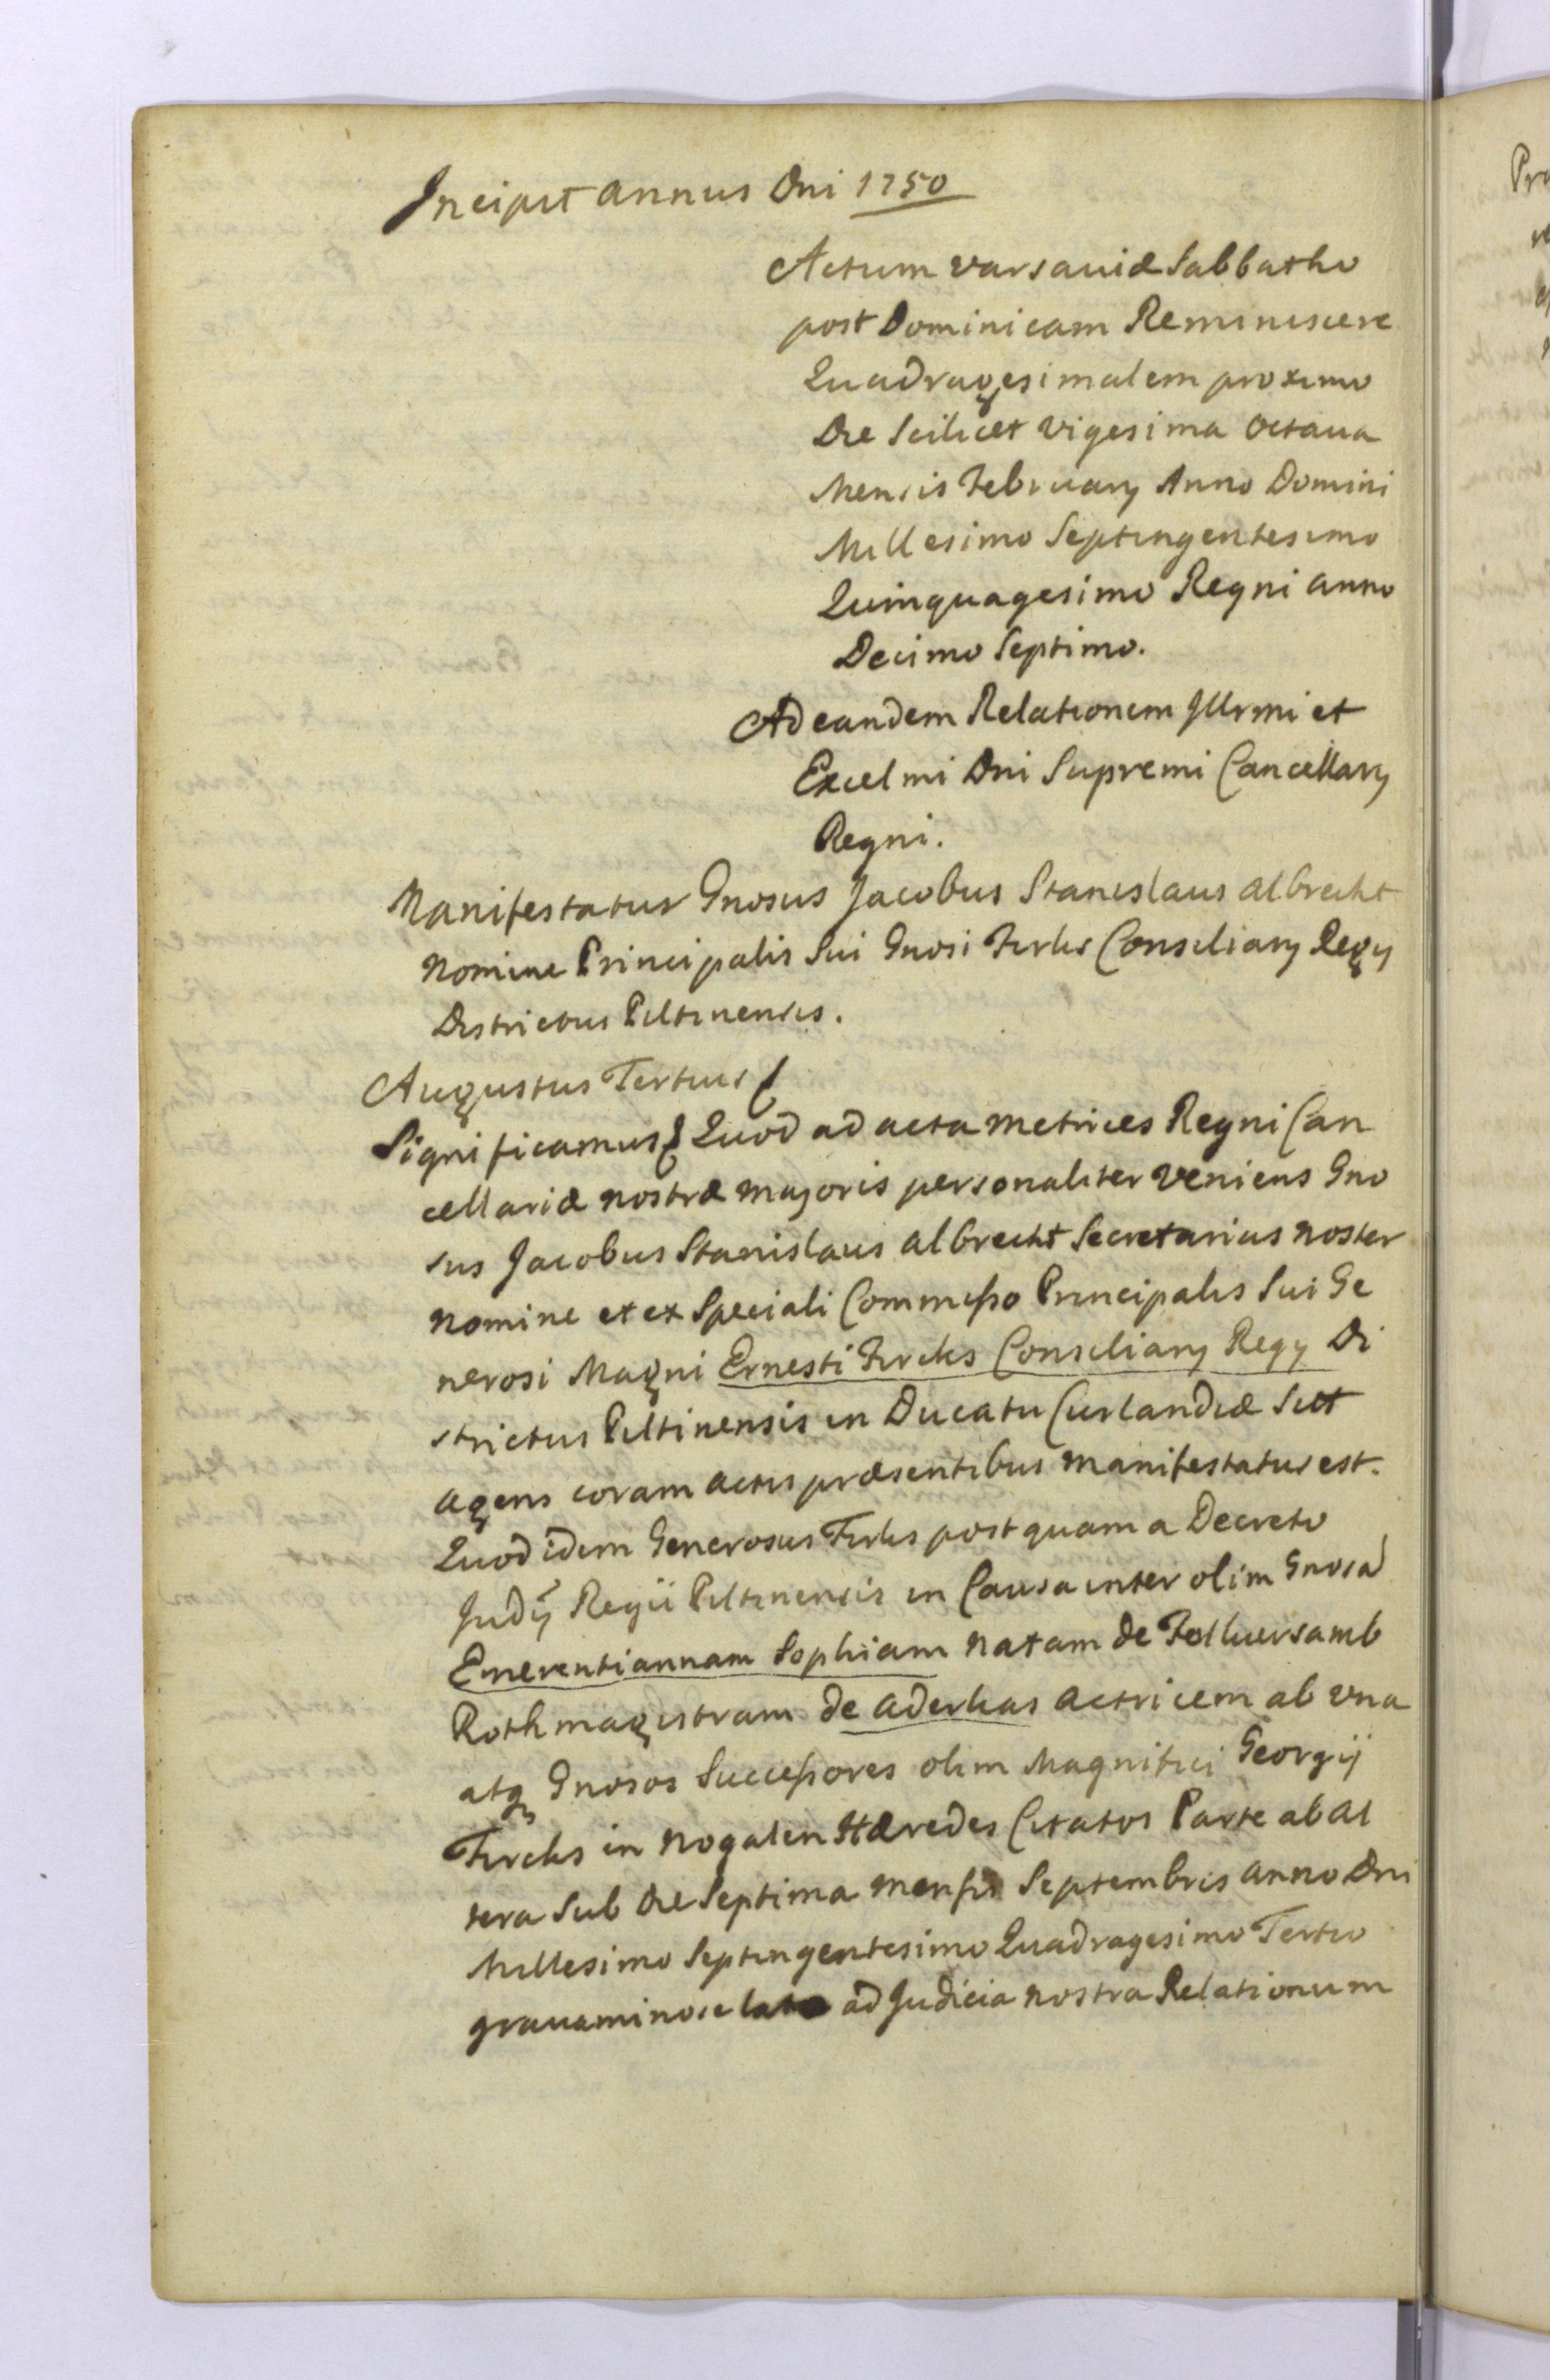 Incipit annus Dni 1750
Actum varsauiæ Sabbatho
post Dominicam Reminiscere
Quadragesimalem proximo
Die Scilicet vigesima octaua
Mensis February Anno Domini
Millesimo Septingentesimo
Quinquagesimo Regni anno
Decimo Septimo.
Ad eandem Relationem Jllrmi et
Excelmi Dni Supremi Cancellary
Regni.
Manifestatur Gnosus Jacobus Stanislaus albrecht
nomine Principalis Sui Gnosi Firks Consiliary Regy
Districtus Piltinensis.
Augustus Tertius
Significamus Quod ad acta metrices Regni Can
cellariæ nostræ majoris personaliter veniens Gno
sus Jacobus Stanislaus albrecht Secretarius noster
nomine et ex Speciali Commisso Principalis Sui Ge
nerosi Magni Ernesti Fircks Consiliary Regy Di
strictus Piltinensis in Ducatu Curlandiæ
agens coram actis præsentibus manifestatus est.
Quod idem Generosus Firks postquam a Decreto
Judÿ Regii Piltinensis in Causa inter olim Gnosa
Emerentiannam Sophiam natam de
Rothmagistram de aderkas actricem ab vna
atq Gnosos Successores olim Magnifici Georgij
Fircks in Nogalen Hæredes Citatos Parte ab al
tera Sub die Septima mensis Septembris anno Dni
Millesimo Septingentesimo Quadragesimo Tertio
grauaminose ad Judicia nostra Relationum
Pra